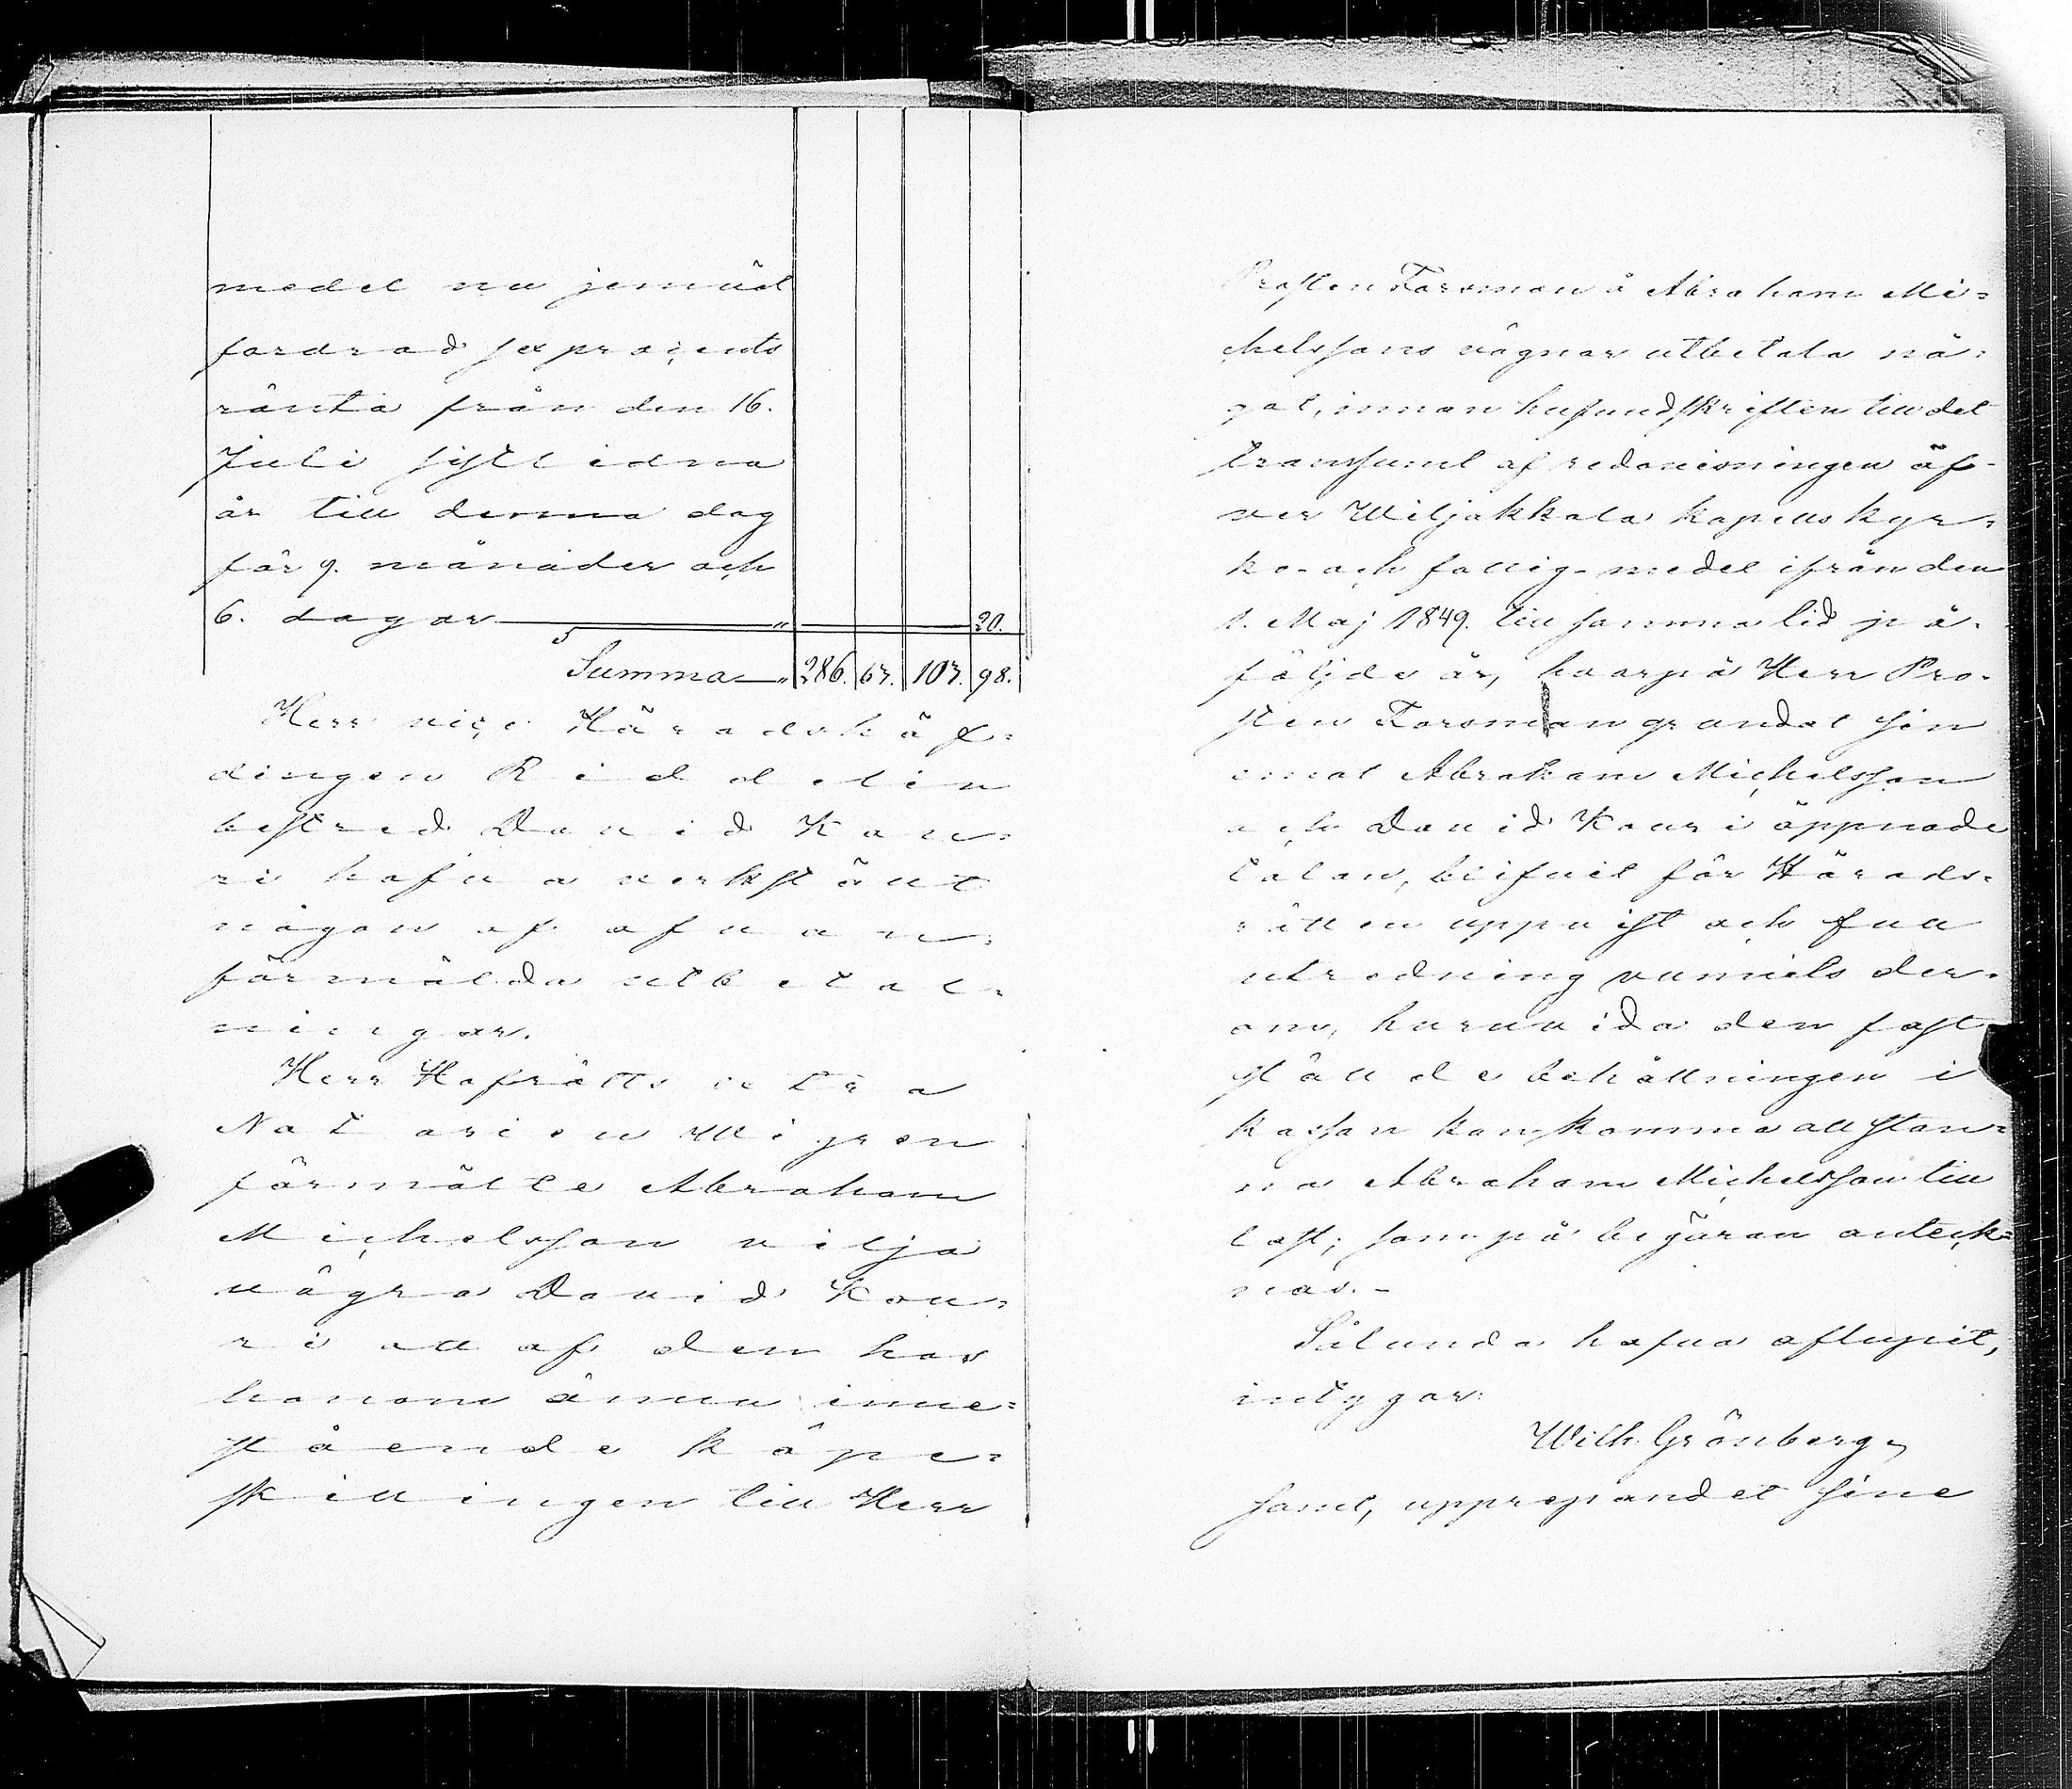 medel nu jemväl
fordrad sex procents
ränta från den 16.
Juli sistledna
år till denna dag
för 9. månader och
6. dagar " 20.
Summa " 286. 67. 107. 98.
Herr vice Häradshöf=
dingen Riddelin
bestred David Kau=
ri hafva verkstält
någon af ofvan=
förmälda utbetal=
ningar.
Herr Hofrätts extra
Notarien Wigren
förmälte Abraham
Michelsson vilja
vägra David Kau=
ri att af den hos
honom ännu inne=
stående köpe=
skillingen till Herr
Prosten Forsman å Abraham Mi=
chelssons vägnar utbetala nå=
got, innan hufvudskriften till det
transsumt af redovisningen öf=
ver Wiljakkala kapells kyr=
ko- och fattig-medel ifrån den
1. Maj 1849. till samma tid på=
följde år, hvarpå Herr Pro=
sten Forsman grundat sin
emot Abraham Michelsson
och David Kauri öppnade
talan, blifvit för Härads=
rätten uppvist och full
utredning vunnits der=
om, huruvida den fast=
stälde behållningen i
kassan kan komma att stan=
na Abraham Michelsson till
last; som på begäran anteck=
nas. -
Sålunda hafva aflupit,
intygar:
Wilh. Grönberg,
samt, upprepandet sine